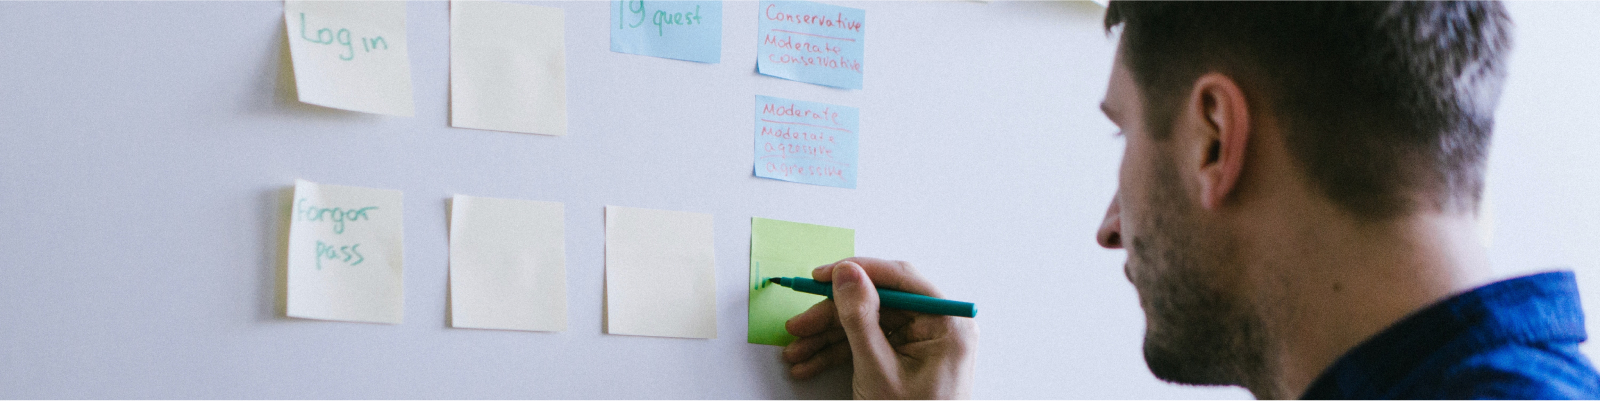 Log in
19 quest
Conservative
Moderate
conservative
Moderate
Moderate
agresive
agressive
Forgot
pass